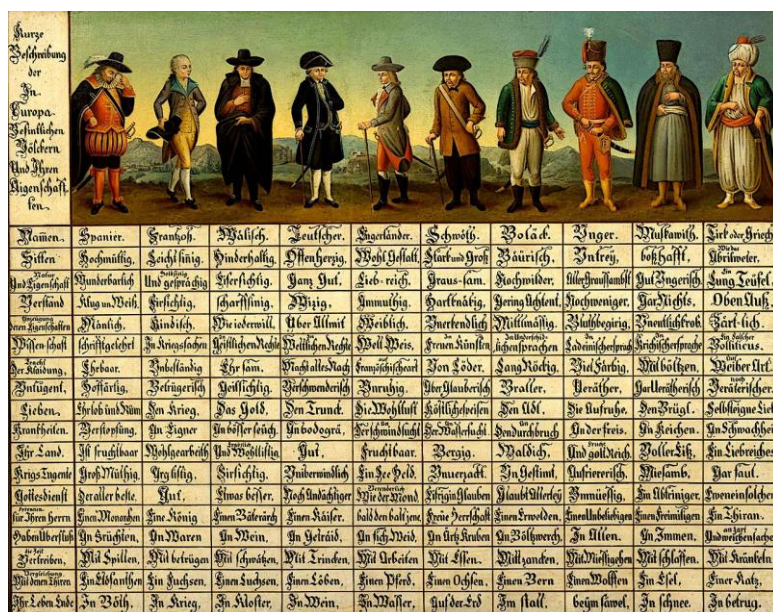 Kurze
Beschreibung
der
In
Europa
Befintlichen
Völckern
Und Ihren
Aigenschaff
ten.
Namen. Spanier. Frantzoß. Wälisch. Teutscher. Engerländer. Schwöth. Boläck. Unger. Muskawith. Tirk oder Griech
Sitten Hochmüttig. Leicht sinig. Hinderhaltig. Offenherzig. Wohl Gestalt. Stark und Groß Bäurisch. Untrey. boßhafft. Abrilweter.
Und Eigenschaft Wunderbarlich Und gesprächig Eifersichtig. Ganz Gut. Lieb-reich. Graus-sam. Hochwilder. Aller Graussambst Gut Ungerisch. Lung Teüfel.
Verstand Klug un Weiß. Firsichtig. scharffsinig. Wizig. Ammuthig. Hartknäbig. Gering Achtent. Nochweniger. Gar Nichts. Oben Auß.
deren Eigenschaften Mänlich. Kindisch. Wie iederwill. Über Allmit Weiblich. Unerkendlich Mittlmäsig. Bluthbegirig. Zärt-lich.
Wissenschaft schriftgelehrt In Kriegssachen Geistlichen Rechte Weltlichen Rechte Welt Weis. Freuen Künsten lichensprachen Ladeinischersprach Krichischersprache Politicus.
Der Klaidung. Ehrbaar. Unbeständig Ehrsam. Macht alles Nach Französischeart Von Löder. Lang Röckig. Viel Färbig. Mit böltzen. Weiber Art.
Untugent. Hoffärtig. Betrügerisch Geillsichtig. Verschwenderisch Unruhig. Über Glauberisch Braller. Veräther. Gar Verätherisch Verätherischer.
Lieben. Ehrlob und Rüm Den Krieg. Das Gold. Den Trunck. Die Wohllust Köstlichespeisen Den Adl. Die Aufruhe. Den Brügl. Selbsteigne Lieb
Krankheiten. Verstopfung. An Eigner An bösser seüch. An bodogrä. Der schwindsucht Der Wassersucht. Den durchbruch An der freis. An Keichen. An Schwachheit
Ihr Land. Ist fruchtbaar Wohlgearbeith Und Wohllistig Gut. Fruchtbaar. Bergig. Waldich. Und gollt Reich. Voller Eiß. Ein Liebreiches
Krigs Tugente Groß Müthig. Arg listig. Firsichtig. Uniberwindlich Ein See Held. Unverzackt. Un Gestimt. Aufriererisch. Miesamb. Gar faul.
Gottesdienst Der aller beste. Gut. Etwas besser. Noch Andächtiger Wie der Mond Eifrig in Glauben Glaubt Allerley Unmüessig. Ein Abtriniger. Eweneinsolcher
für Ihren Herrn Einen Monarchen Eine König Einen Bäterärch Einen Käiser. bald den bald jene. Freüe Herrschaft Einen Erwelden. Einen Unbeliebigen Einen Freimäligen Ein Thiran.
Haben Uberfluß An Früchten. An Waren An Wein. An Getraid. An fich Weid. An Ärtz Kruben An Böltzwerch. In Allen. An Immen. An weichen sachen
Vertreiben. Mit Spillen. Mit betrügen Mit schwätzen. Mit Trincken. Mit Arbeiten Mit Essen. Mit zancken. Mit Müessigehen Mit schlaffen. Mit Kränkeln
Mit denen Thiren Ein Elofanthen Ein Fuchsen. Einen Luchsen. Einen Löben. Einen Pferd. Einen Ochsen. Einen Bern Einen Wolffen Ein Esel. Einer Katz.
Ihr Leben Ende In Böth. In Krieg. In Kloster. In Wein. In Wasser. Auf der Erd Im stall. beym sawel. In schnee. In betrug.